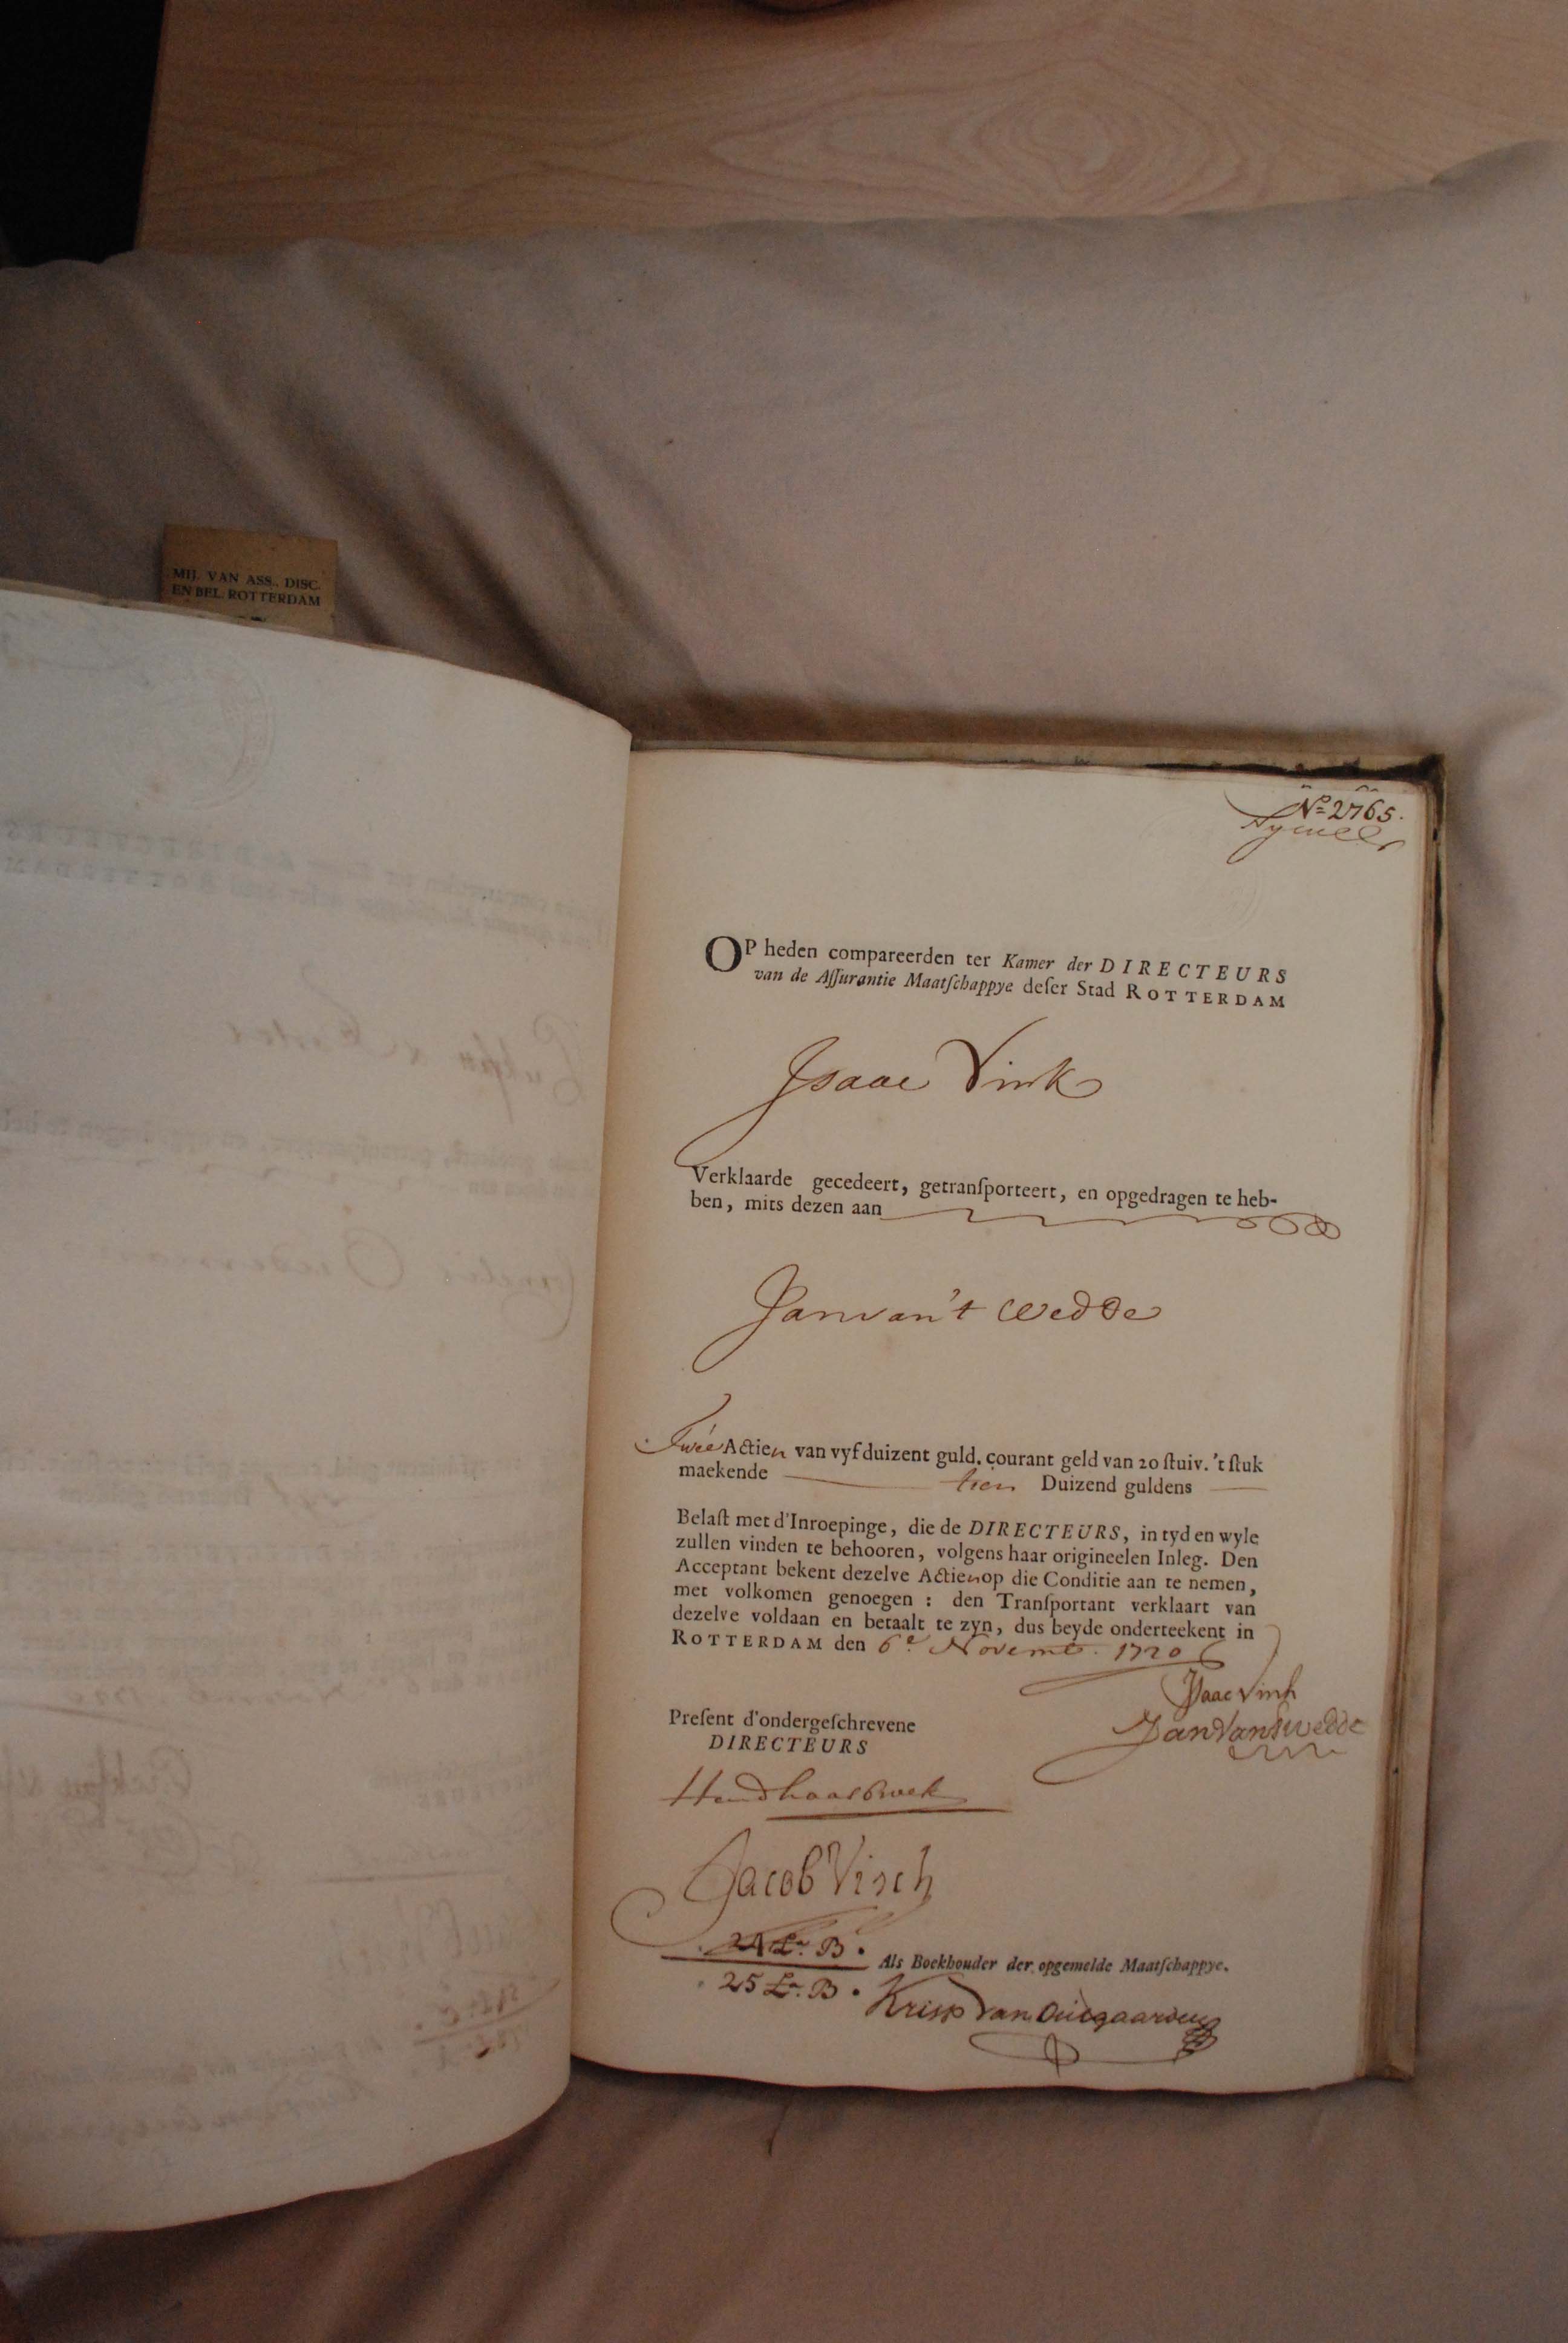 MIJ. VAN ASS., DISC.
EN BEL. ROTTERDAM
No 2765.
OP heden compareerden ter Kamer der DIRECTEURS
van de Aſſurantie Maatſchappye deſer Stad ROTTERDAM
Isaac Vink
Verklaarde gecedeert, getranſporteert, en opgedragen te heb-
ben, mits dezen aan
Jan van't Wedde
Twee Actien van vyf duizent guld. courant geld van 20 ſtuiv. 't ſtuk
maekende tien Duizend guldens
Belaſt met d'Inroepinge, die de DIRECTEURS, in tyd en wyle
zullen vinden te behooren, volgens haar origineelen Inleg. Den
Acceptant bekent dezelve Actien op die Conditie aan te nemen,
met volkomen genoegen : den Tranſportant verklaart van
dezelve voldaan en betaalt te zyn, dus beyde onderteekent in
ROTTERDAM den 6e Novemb. 1720
Isaac Vink
Preſent d'ondergeſchrevene
DIRECTEURS
Jacob Visch
24 La. B.
Als Boekhouder der opgemelde Maatſchappye.
25 La. B.